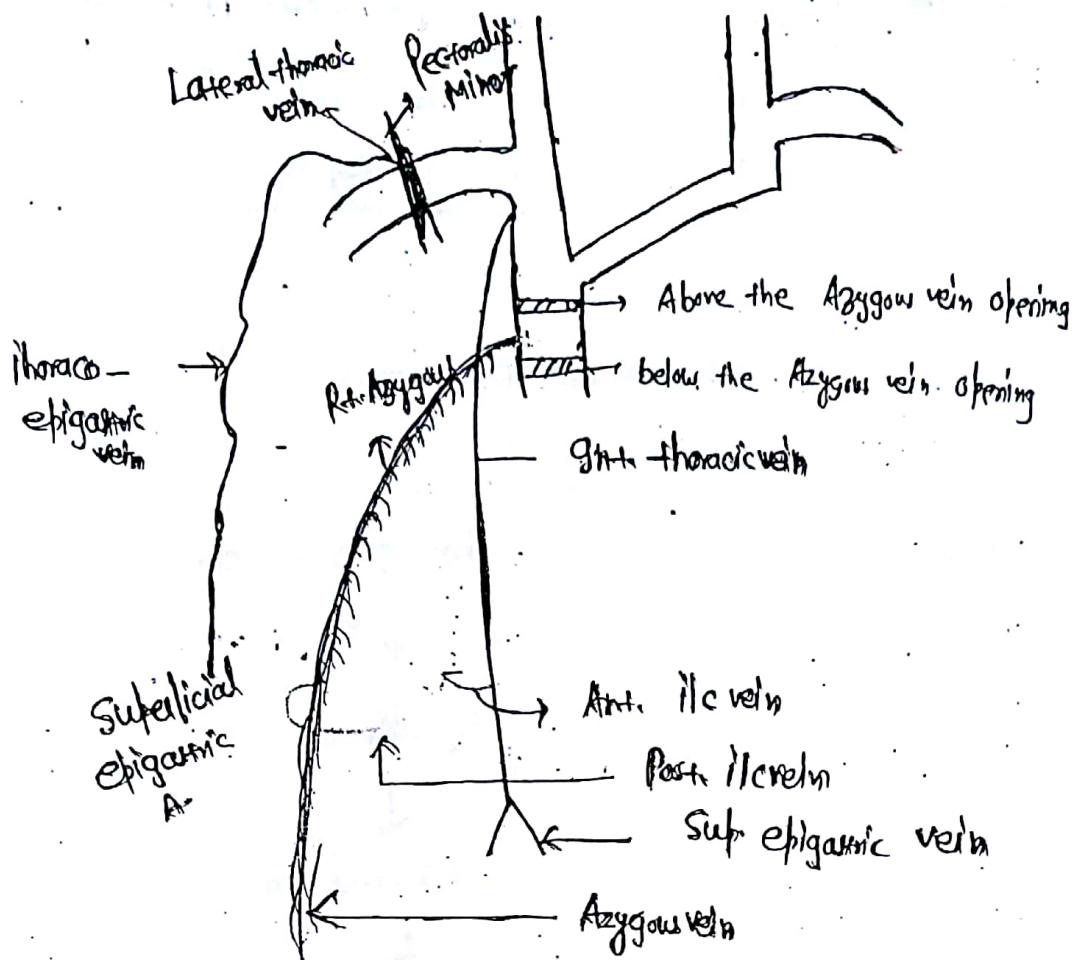 Lateral thoracic
vein
Pectoralis
Minor
Above the Azygous vein opening
below the Azygous vein opening
Thoraco -
epigastric
vein
Rt. Azygous
Int. thoracic vein
Superficial
epigastric
A.
Ant. ilc vein
Post. ilc vein
Sup epigastric vein
Azygous vein